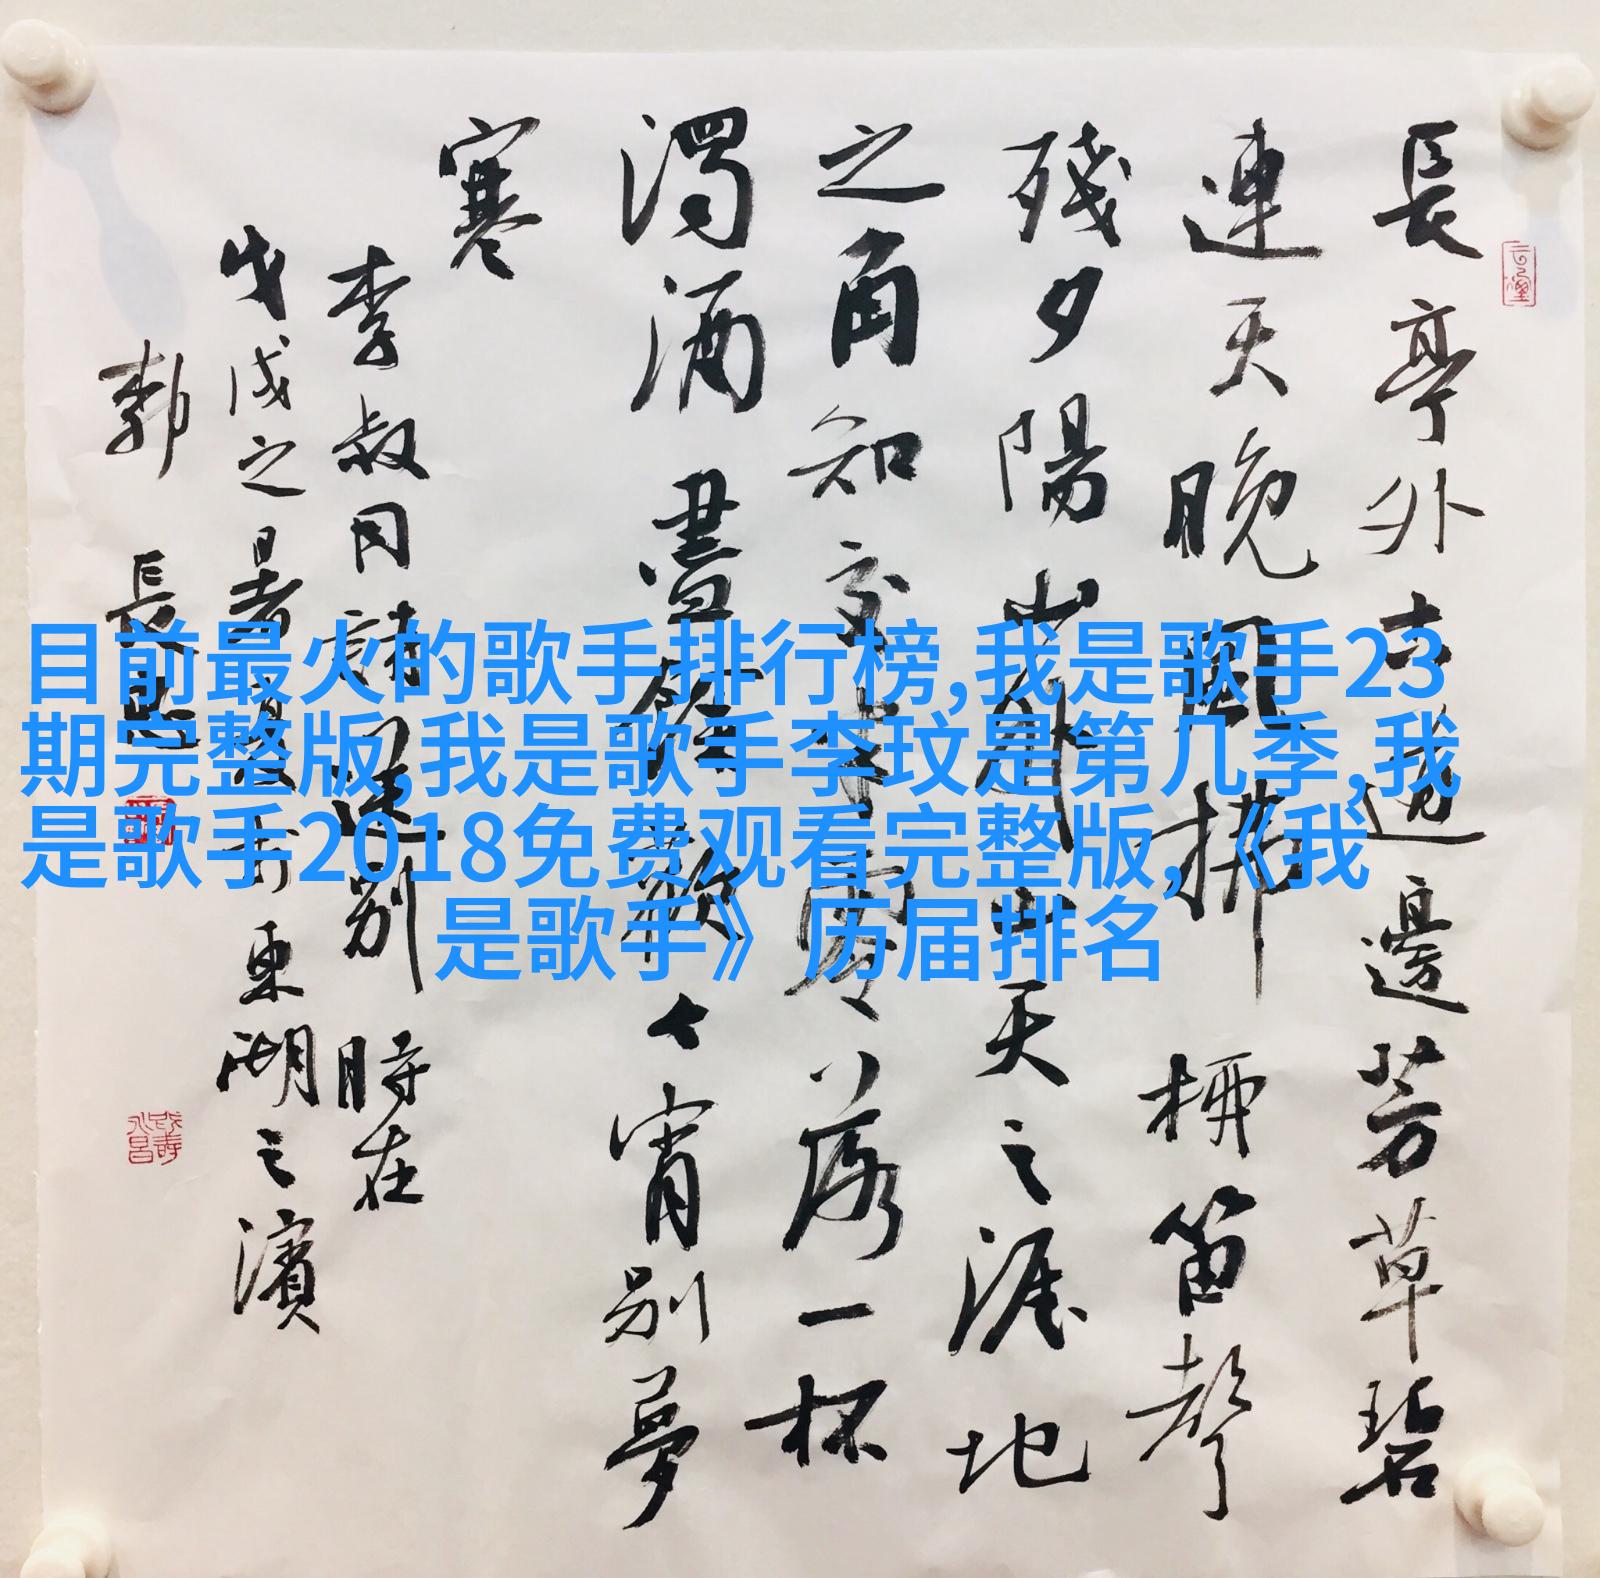 長亭外古道邊芳草碧
連天晚風拂柳笛聲
殘夕陽山外山天之涯地
之角知交半零落一杯
濁酒盡餘歡今宵別夢
寒
李叔同詩送別 時在
戊戌之暑夏於東湖之濱
長
目前最火的歌手排行榜,我是歌手23
期完整版,我是歌手李玟是第几季,我
是歌手2018免费观看完整版,《我
是歌手》历届排名